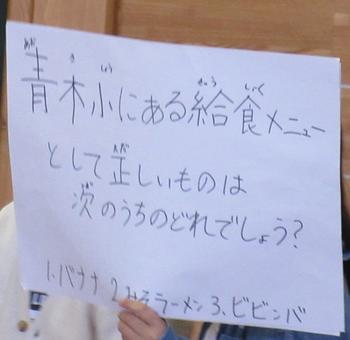 青木小にある給食メニュー
として正しいものは
次のうちのどれでしょう?
1.バナナ 2.みそラーメン 3.ビビンバ